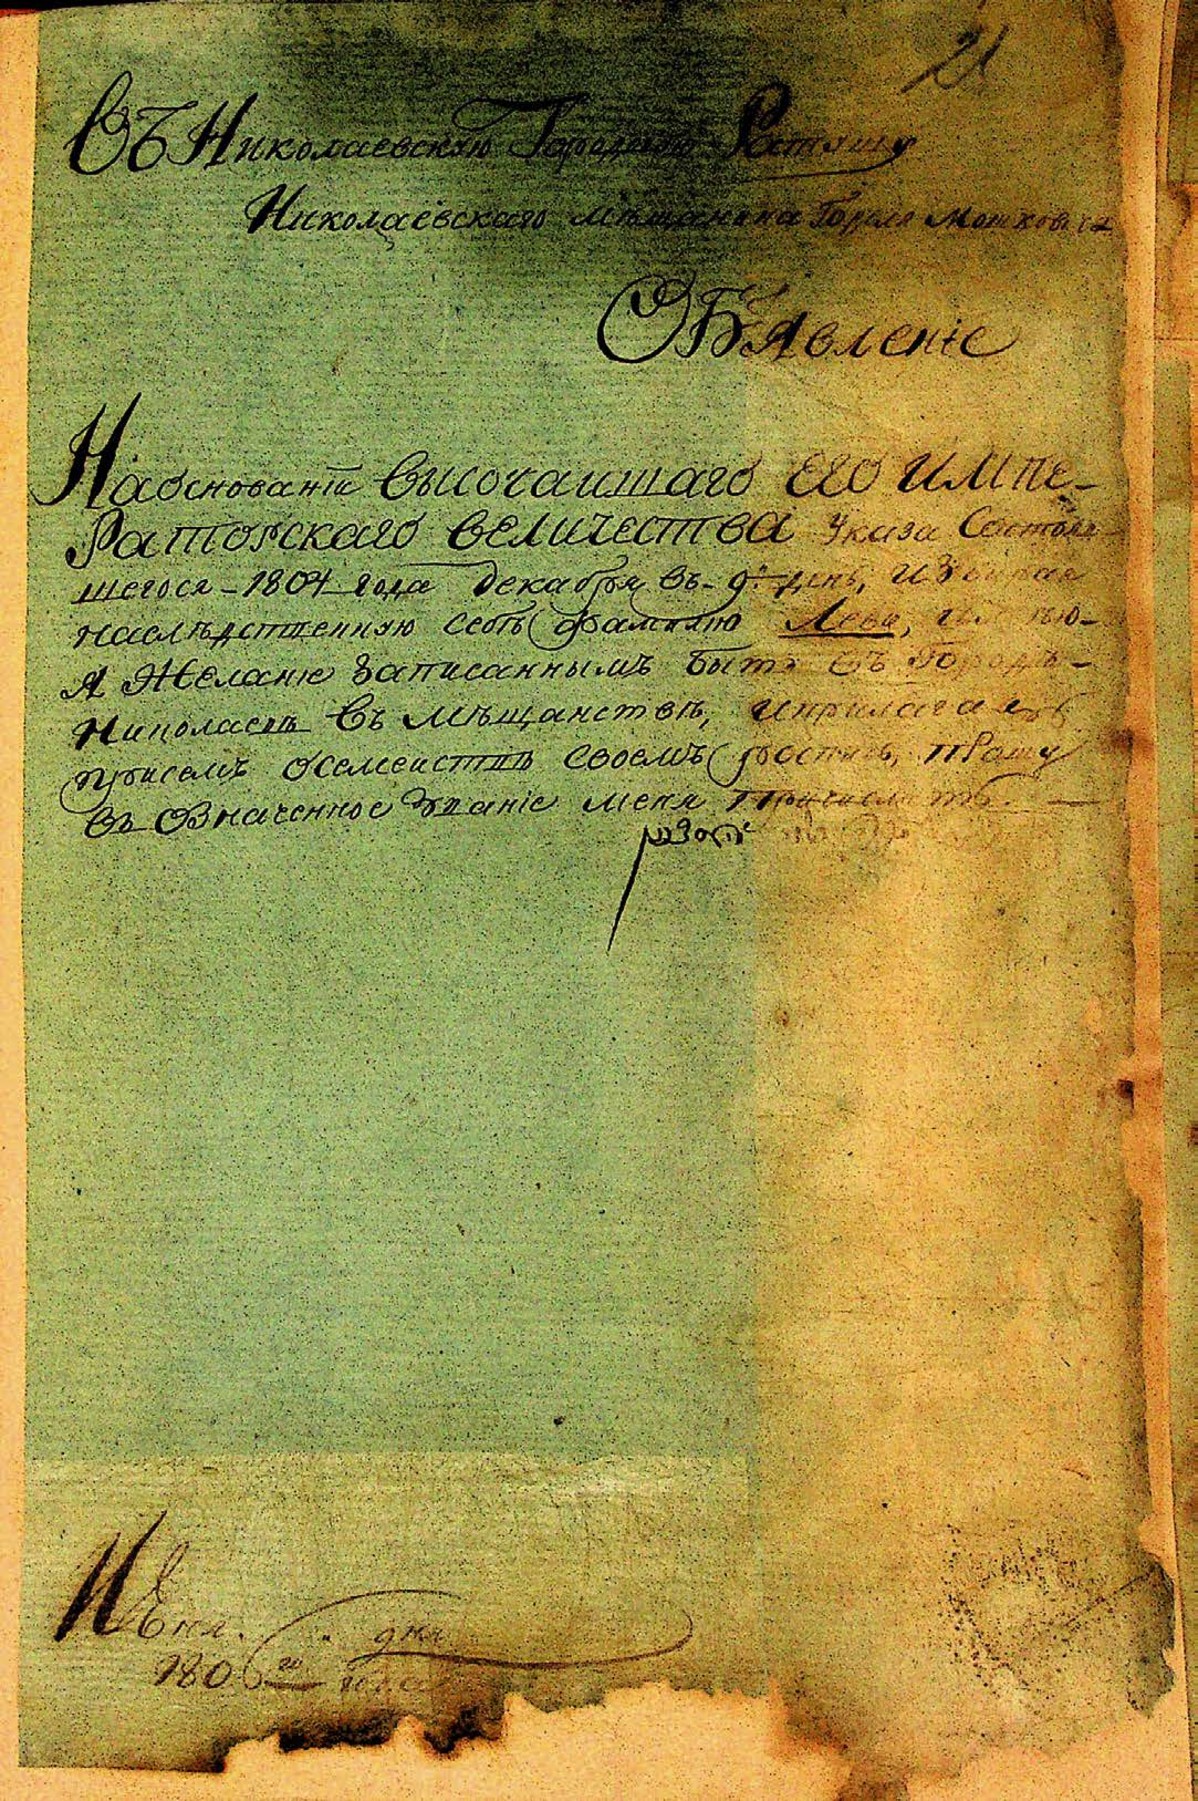 21
Въ Николаевскую Городскую Ратушу
Николаевскаго мѣщанина Мошковича
Объявленіе
На основаніи Высочаишаго ЕГО ИМПЕ-
РАТОРСКАГО ВЕЛИЧЕСТВА Указа Состояв-
шегося 1804 года декабря въ 9й день, Избирая
наслѣдственную себѣ фамилію Лева, имѣю-
Я Желаніе Записаннымъ быть Въ Городѣ-
Николаевѣ Въ Мѣщанствѣ, и прилагая
при семъ о семеиствѣ своемъ роспись, прошу
въ означенное званіе меня причислить. —
Іюня дня
1806го года